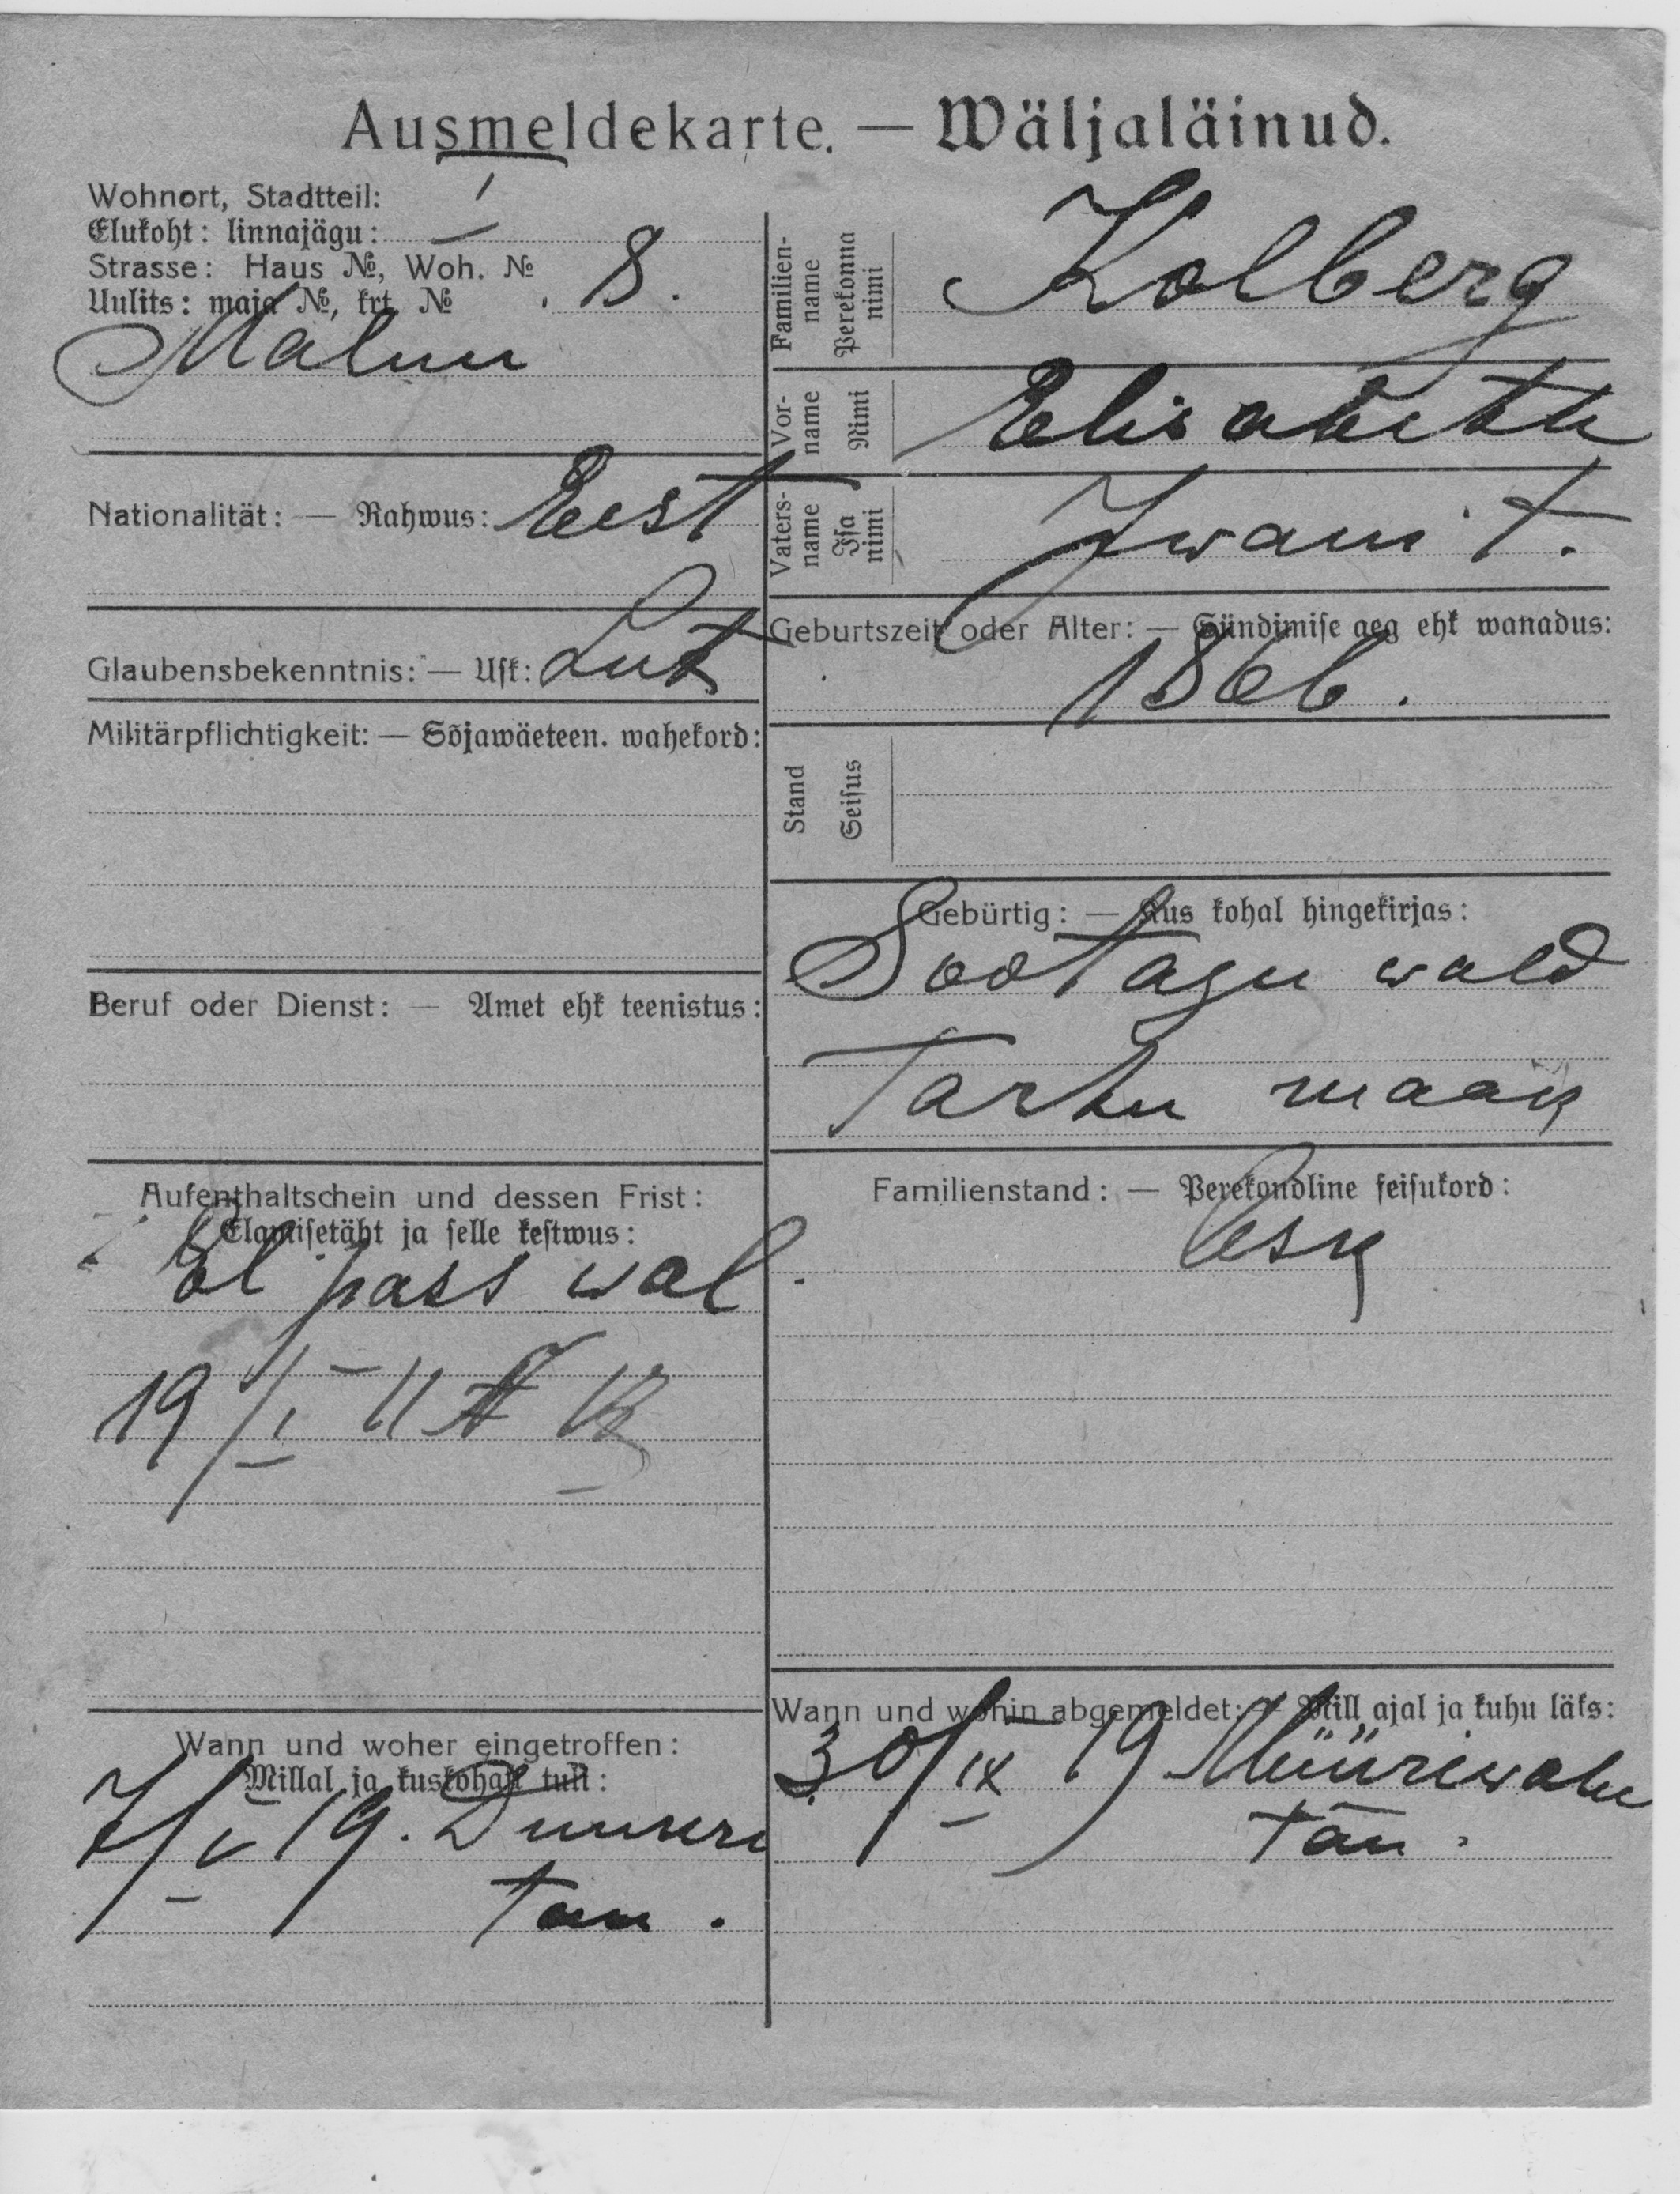 Ausmeldekarte. — Wäljaläinud.
Wohnort, Stadtteil:
Elukoht: linnajägu: I
Strasse: Haus №, Woh. №
Uulits: maja №, krt. № 8.
Malmi
Nationalität: — Rahwus: Eest
Glaubensbekenntnis: — Usk: Lut
Militärpflichtigkeit: — Sõjawäeteen. wahekord:
Beruf oder Dienst: — Amet ehk teenistus:
Aufenthaltschein und dessen Frist:
Elamisetäht ja selle kestwus:
El pass wal.
19/I 11 A
Wann und woher eingetroffen:
Millal ja kuskohalt tuli:
7/V 19. Dunkri
tän.
Familien-name Perekonna nimi Kolberg
Vor-name Nimi Elisabeth
Vaters-name Isa nimi Iwani t.
Geburtszeit oder Alter: — Sündimise aeg ehk wanadus:
1866.
Stand Seisus
Gebürtig: — Kus kohal hingekirjas:
Sootaga wald
Tartu maak
Familienstand: — Perekondline seisukord:
lesk
Wann und wohin abgemeldet: — Mill ajal ja kuhu läks:
30/IX 19 Müüriwahe
tän.